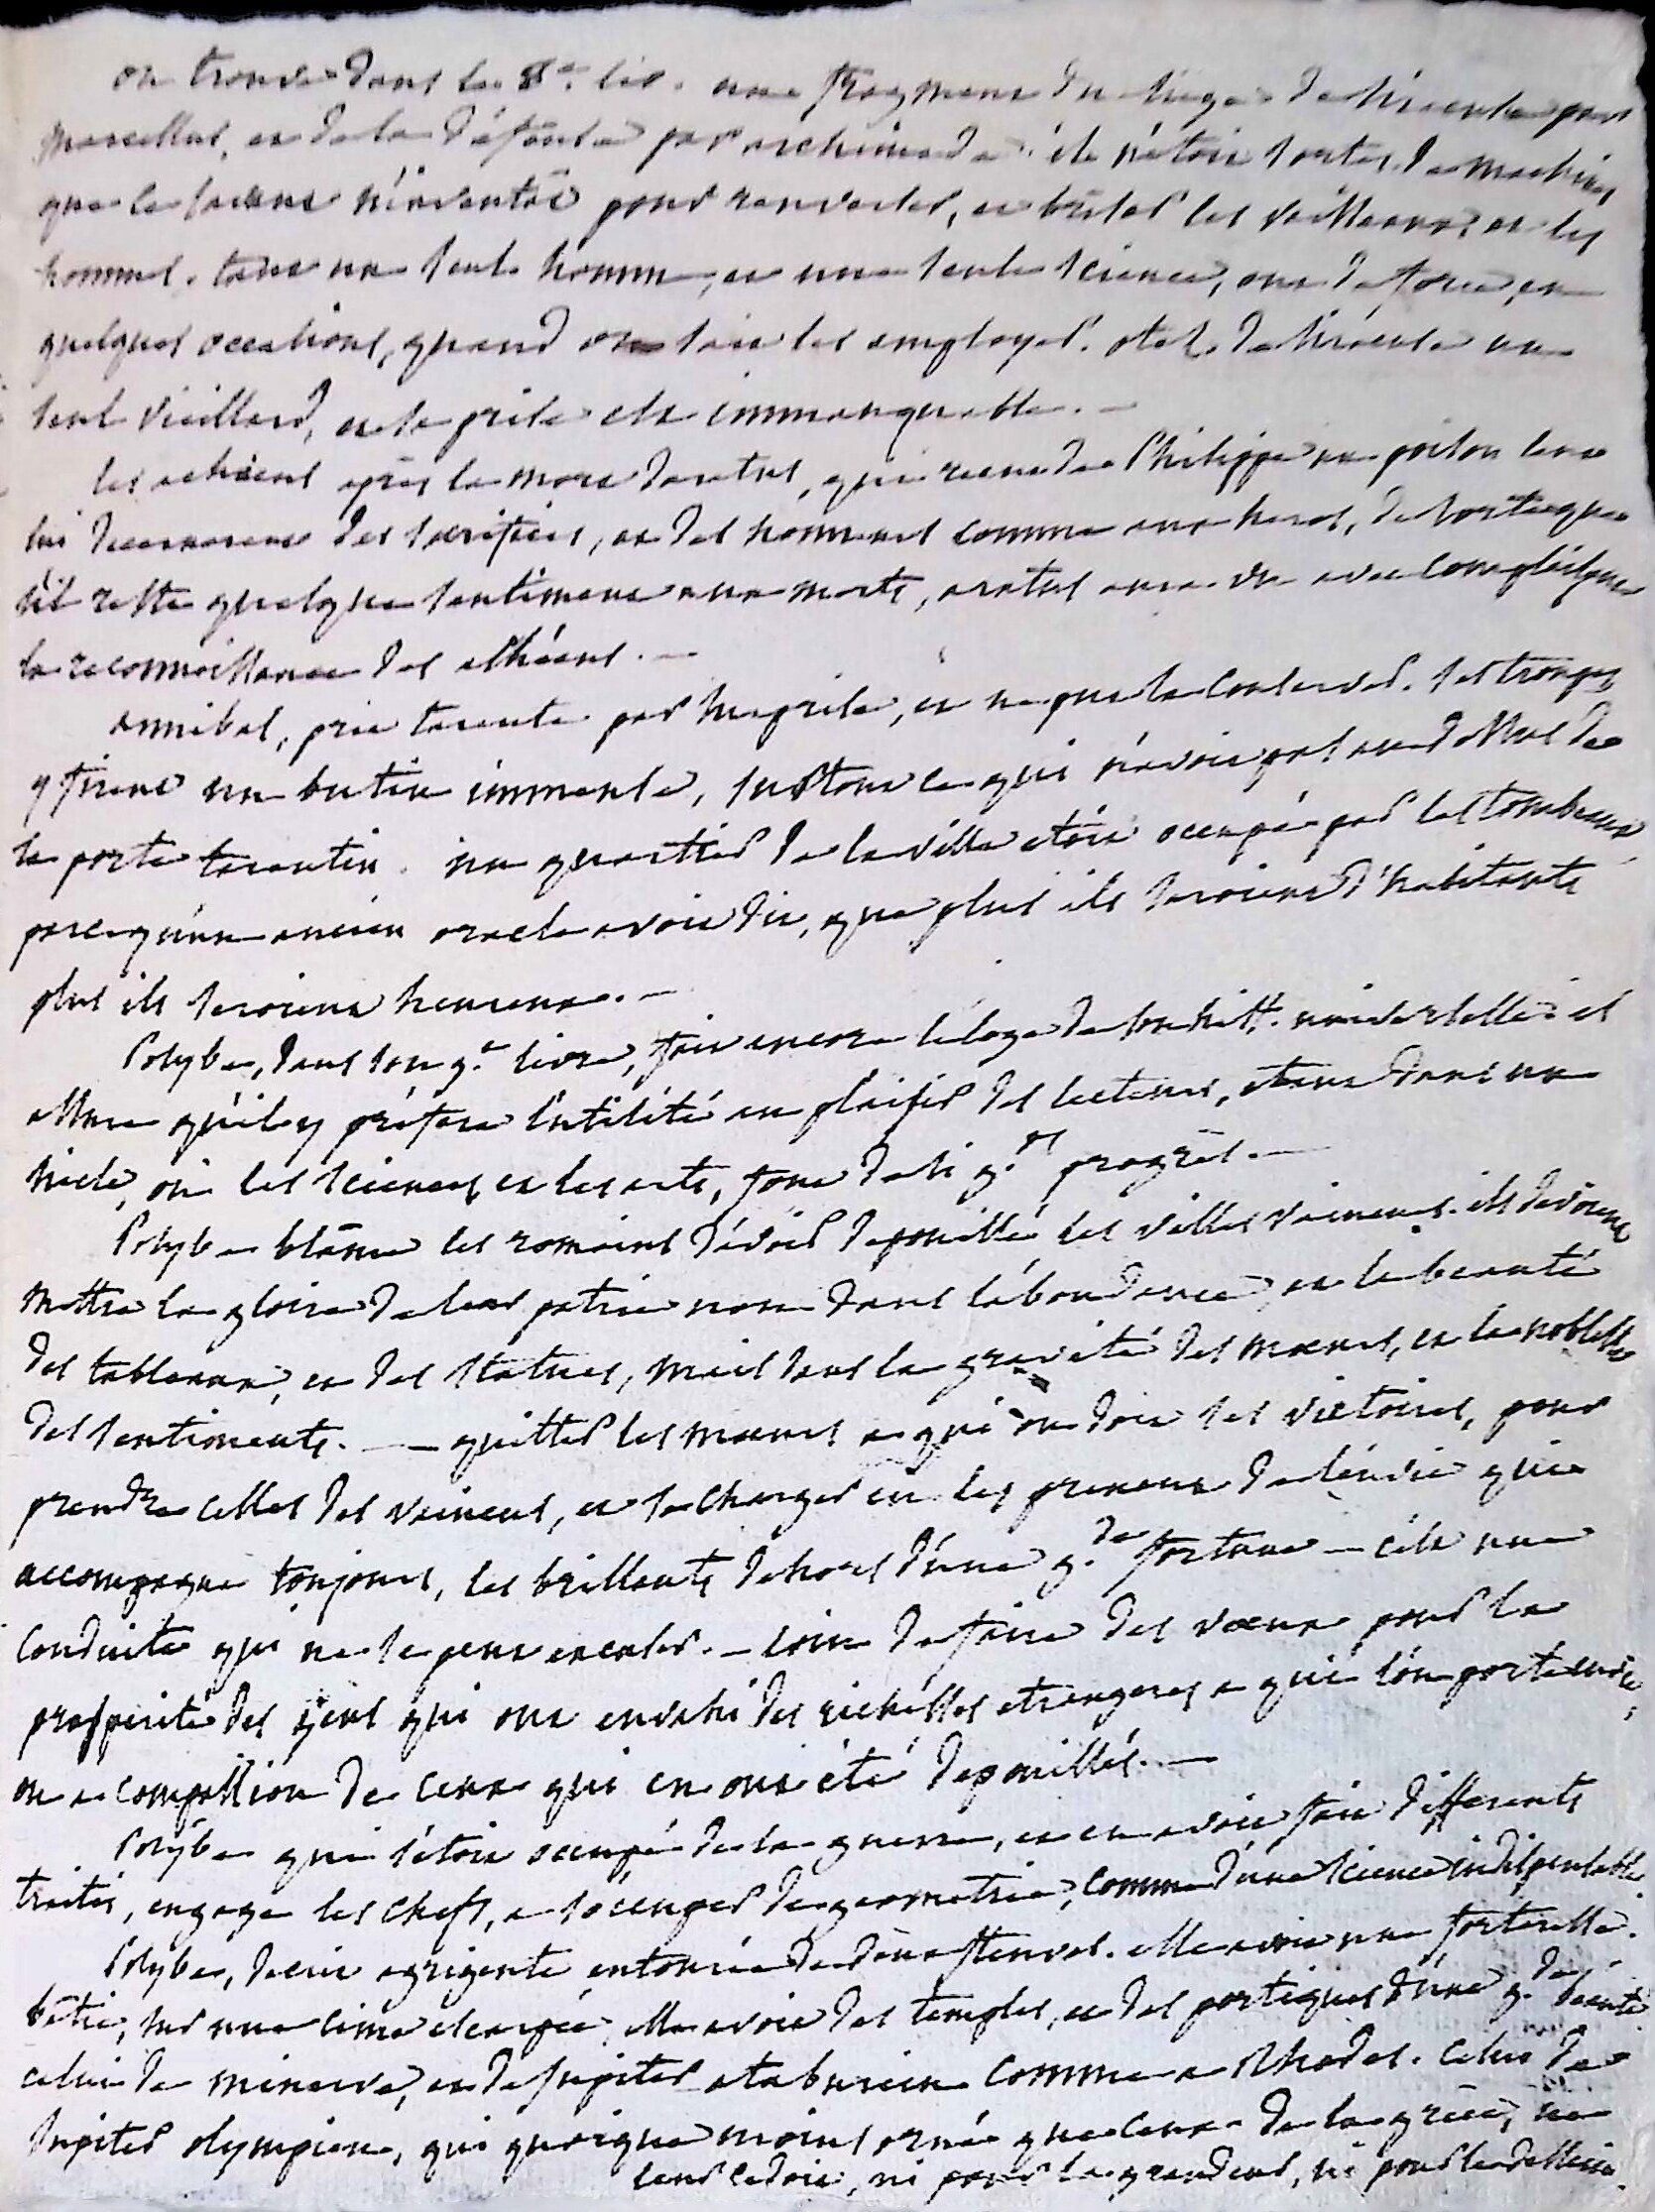 on trouve dans le 8.e liv. un fragment du siège de siracuse par
marcellus, et de la défense par archimède. il n'étoit sortes de machines
que ce savant n'inventât pour renverser, et brûler les vaisseaux et les
hommes. tant un seul homme, et une seule science, ont de force en
quelques occasions, quand on sait les employer. otez de siracuse un
seul vieillard, et la prise est immanquable. —
les achéens après la mort d'aratus, qui reçut de Philippe un poison lent
lui decernerent des sacrifices, et des honneurs comme aux heros, de sorte que
s'il reste quelque sentiment aux morts, aratus aura vu avec complaisance
la reconnoissance des achéens. —
annibal, prit tarente par surprise, et ne put la conserver. ses troupes
y firent un butin immense, surtout ce qui n'avoit pas au dessus de
la porte tarentin. un quartier de la ville étoit occupé par les tombeaux
parcequ'un ancien oracle avoit dit, que plus ils seroient d'habitants
plus ils seroient heureux. —
Polybe, dans son 9.e livre, fait encore l'eloge de son hist. universelle: il
assure qu'il y préfère l'utilité au plaisir des lecteurs, étant dans un
siecle, où les sciences, et les arts, font de si g.ds progrès. —
Polybe blâme les romains d'avoir depouillé les villes vaincues. ils devoient
mettre la gloire de leur patrie non dans l'abondance, et la beauté
des tableaux, et des statues, mais dans la gravité des mœurs, et la noblesse
des sentiments. — quitter les mœurs a qui on doit ses victoires, pour
prendre celles des vaincus, et se charger en les prenant de l'envie qui
accompagne toujours, les brillants dehors d'une g.de fortune — c'est une
conduite qui ne se peut excuser. — loin de faire des vœux pour la
prospérité des gens qui ont envahi des richesses etrangeres a qui l'on porte envie,
on a compassion de ceux qui en ont été depouillés. —
Polybe qui s'étoit occupé de la guerre, et en avoit fait differents
traités, engage les chefs, a s'occuper de geometrie, comme d'une science indispensable.
Polybe, decrit agrigente entourée de deux fleuves. elle avoit une forteresse
bâtie, sur une cime escarpée, elle avoit des temples, et des portiques d'une g.de beauté
celui de minerve, et de jupiter atabirien comme a Rhodes. celui de
Jupiter olympien, qui quoique moins orné que ceux de la grèce, ne
leur cedoit, ni pour la grandeur, ni pour le dessein.